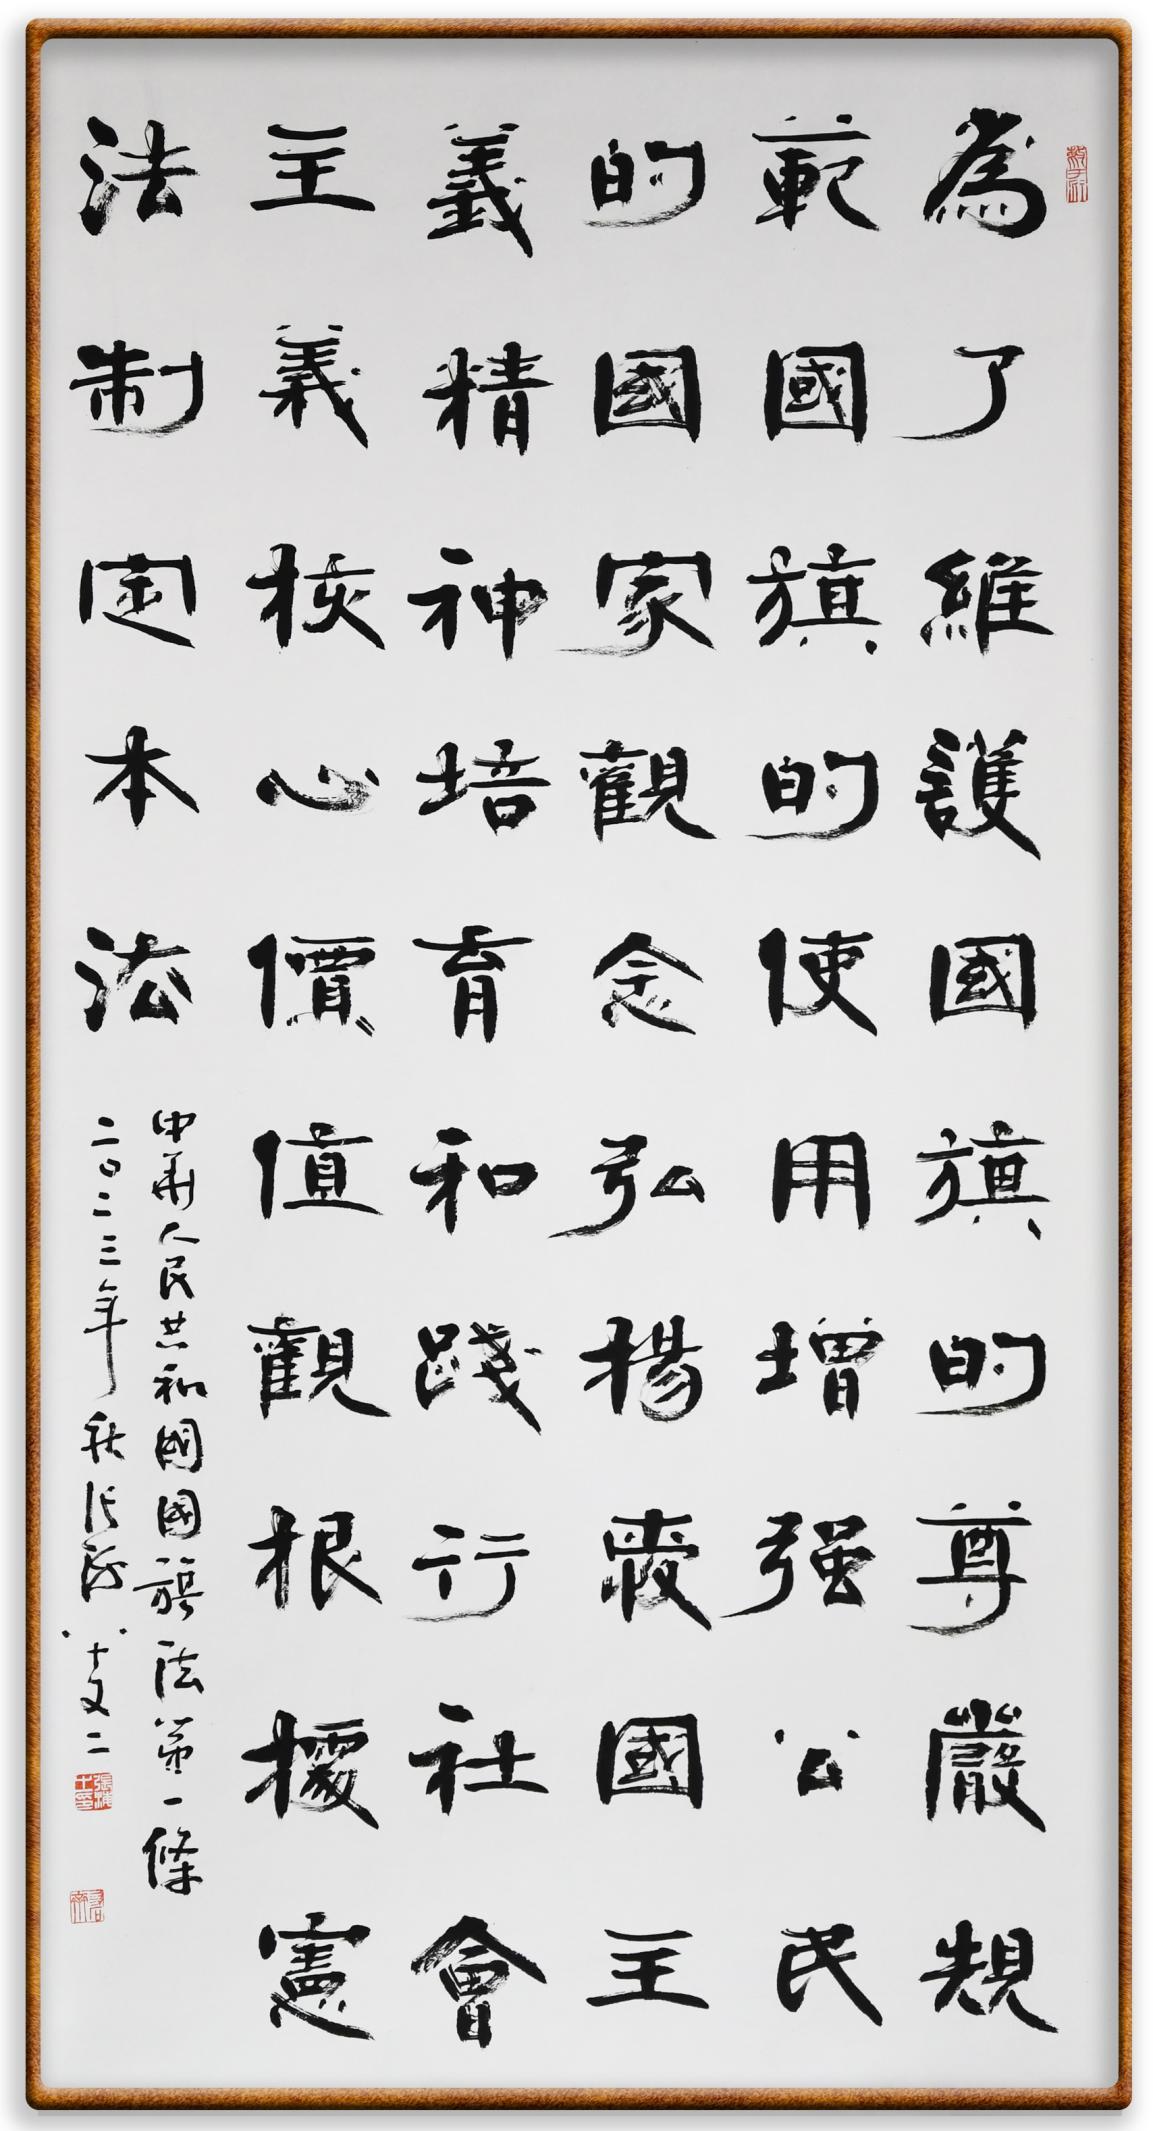 為了維護國旗的尊嚴規
範國旗的使用增强公民
的國家觀念弘揚愛國主
義精神培育和踐行社會
主義核心價值觀根據憲
法制定本法
中華人民共和國國旗法第一條
二〇二三年秋